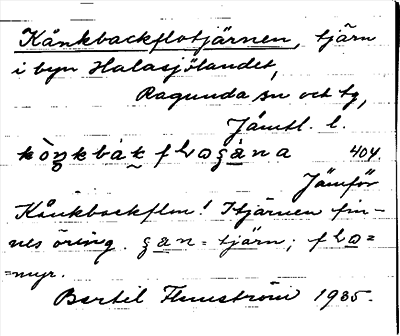 Kånkbackflotjärnen, tjärn
i byn Halasjölandet,
Ragunda sn och tg,
Jämtl. l.
kòŋkbàk flωgàna 404
Jämför
Kånkbackflon! I tjärnen fin-
nes öring. gan = tjärn; flω =
=myr.
Bertil Flemström 1935.